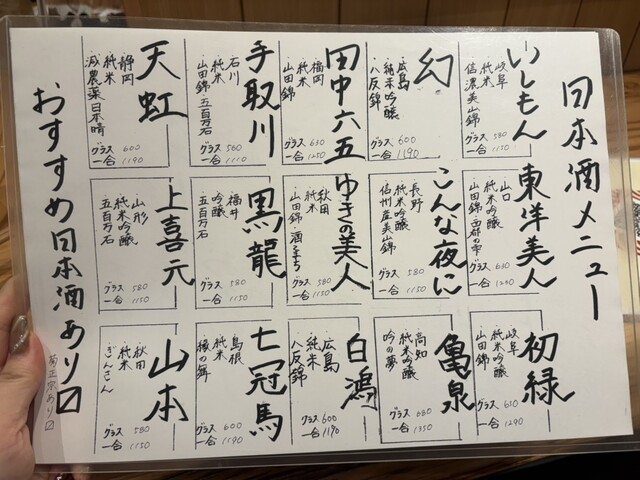 日本酒メニュー
いしもん
・岐阜
・純米
・信濃美山錦
グラス 580
一合 1150
幻
・広島
・純米吟醸
・八反錦
グラス 600
一合 1190
田中六五
・福岡
・純米
・山田錦
グラス 630
一合 1250
手取川
・石川
・純米
・山田錦 五百万石
グラス 560
一合 1110
天虹
・静岡
・純米
・減農薬日本晴
グラス 600
一合 1190
東洋美人
・山口
・純米吟醸
・山田錦・西都の雫
グラス 630
一合 1240
こんな夜に
・長野
・純米吟醸
・信州産美山錦
グラス 580
一合 1150
ゆきの美人
・秋田
・純米
・山田錦・酒こまち
グラス 580
一合 1150
黒龍
・福井
・吟醸
・五百万石
グラス 580
一合 1150
上喜元
・山形
・純米吟醸
・五百万石
グラス 580
一合 1150
初緑
・岐阜
・純米吟醸
・山田錦
グラス 630
一合 1240
亀泉
・高知
・純米吟醸
・吟の夢
グラス 680
一合 1350
白鴻
・広島
・純米
・八反錦
グラス 600
一合 1190
七冠馬
・島根
・純米
・縁の舞
グラス 600
一合 1190
山本
・秋田
・純米
・ぎんさん
グラス 580
一合 1150
おすすめ日本酒あり〼
菊正宗あり〼